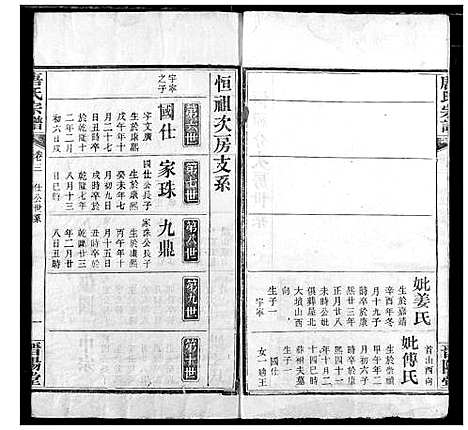 唐氏宗譜
妣姜氏
生於嘉靖
辛酉年冬
月十九子
時卒於康
熙廿三年
正月廿八
未時公妣
俱葬星北
大墳山西
向
生子一
字寧
首山西向
妣傅氏
生於崇禎
月初六子
時卒於康
熙四十一
年十月二
十四巳時
蘇祔夫墓
生子一
女一適王
恒祖次房支系
第六世
第七世
第八世
第九世
第十世
字寧之子
國仕
字文廣
生於康熙
戊午年十
月二十七
日丑時卒
於乾隆十
二年二月
初六日戌
家珠
國仕公長子
生於康熙
癸未年七
月初九日
戌時卒於
乾隆七年
八月十三
日巳時
九鼎
家珠公長子
生於康熙
丙午年十
月初十日
丑時卒於
乾隆廿三
年二月廿
八日丑時
唐氏宗譜
卷二
仕公世系
一
晉陽堂